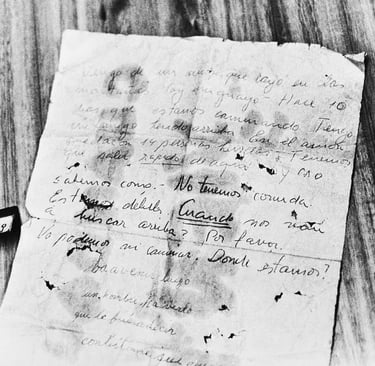 Vengo de un avion que cayo en las
montañas. Soy uruguayo. Hace 10
dias que estamos caminando. Tengo
un amigo herido arriba. En el avion
quedan 14 personas heridas. Tenemos
que salir rapido de aqui y no
sabemos como. No tenemos comida.
Estamos debiles. Cuando nos van
a buscar arriba? Por favor.
No podemos ni caminar. Donde estamos?
luego
un hombre a verlo
que le